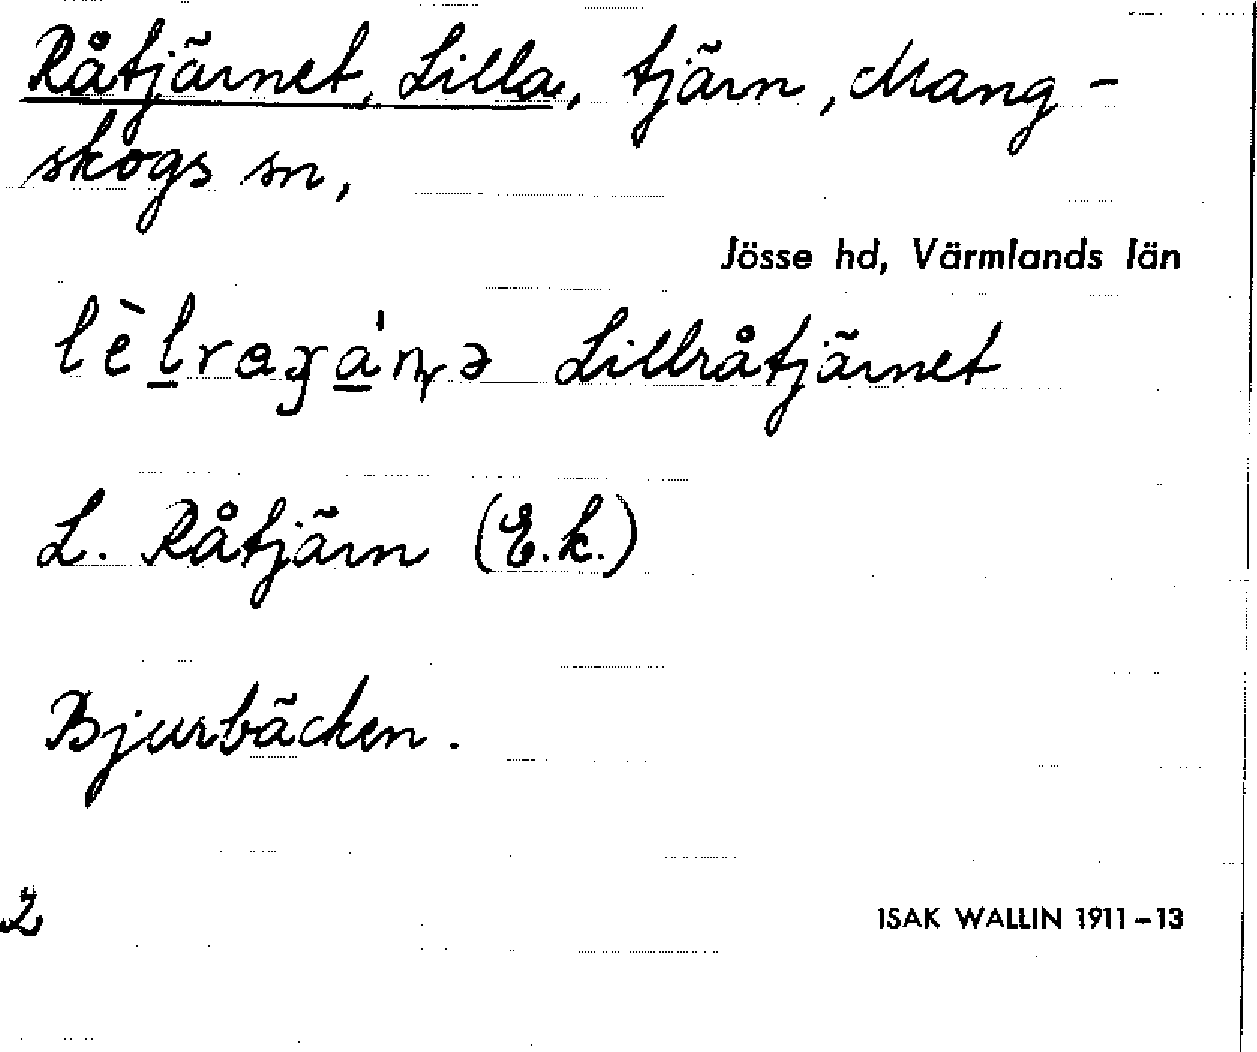 Råtjärnet, Lilla, tjärn, Mang-
skogs sn,
Jösse hd, Värmlands län
Lillråtjärnet
L. Råtjärn (E.k.)
Bjurbäcken.
2
ISAK WALLIN 1911-13